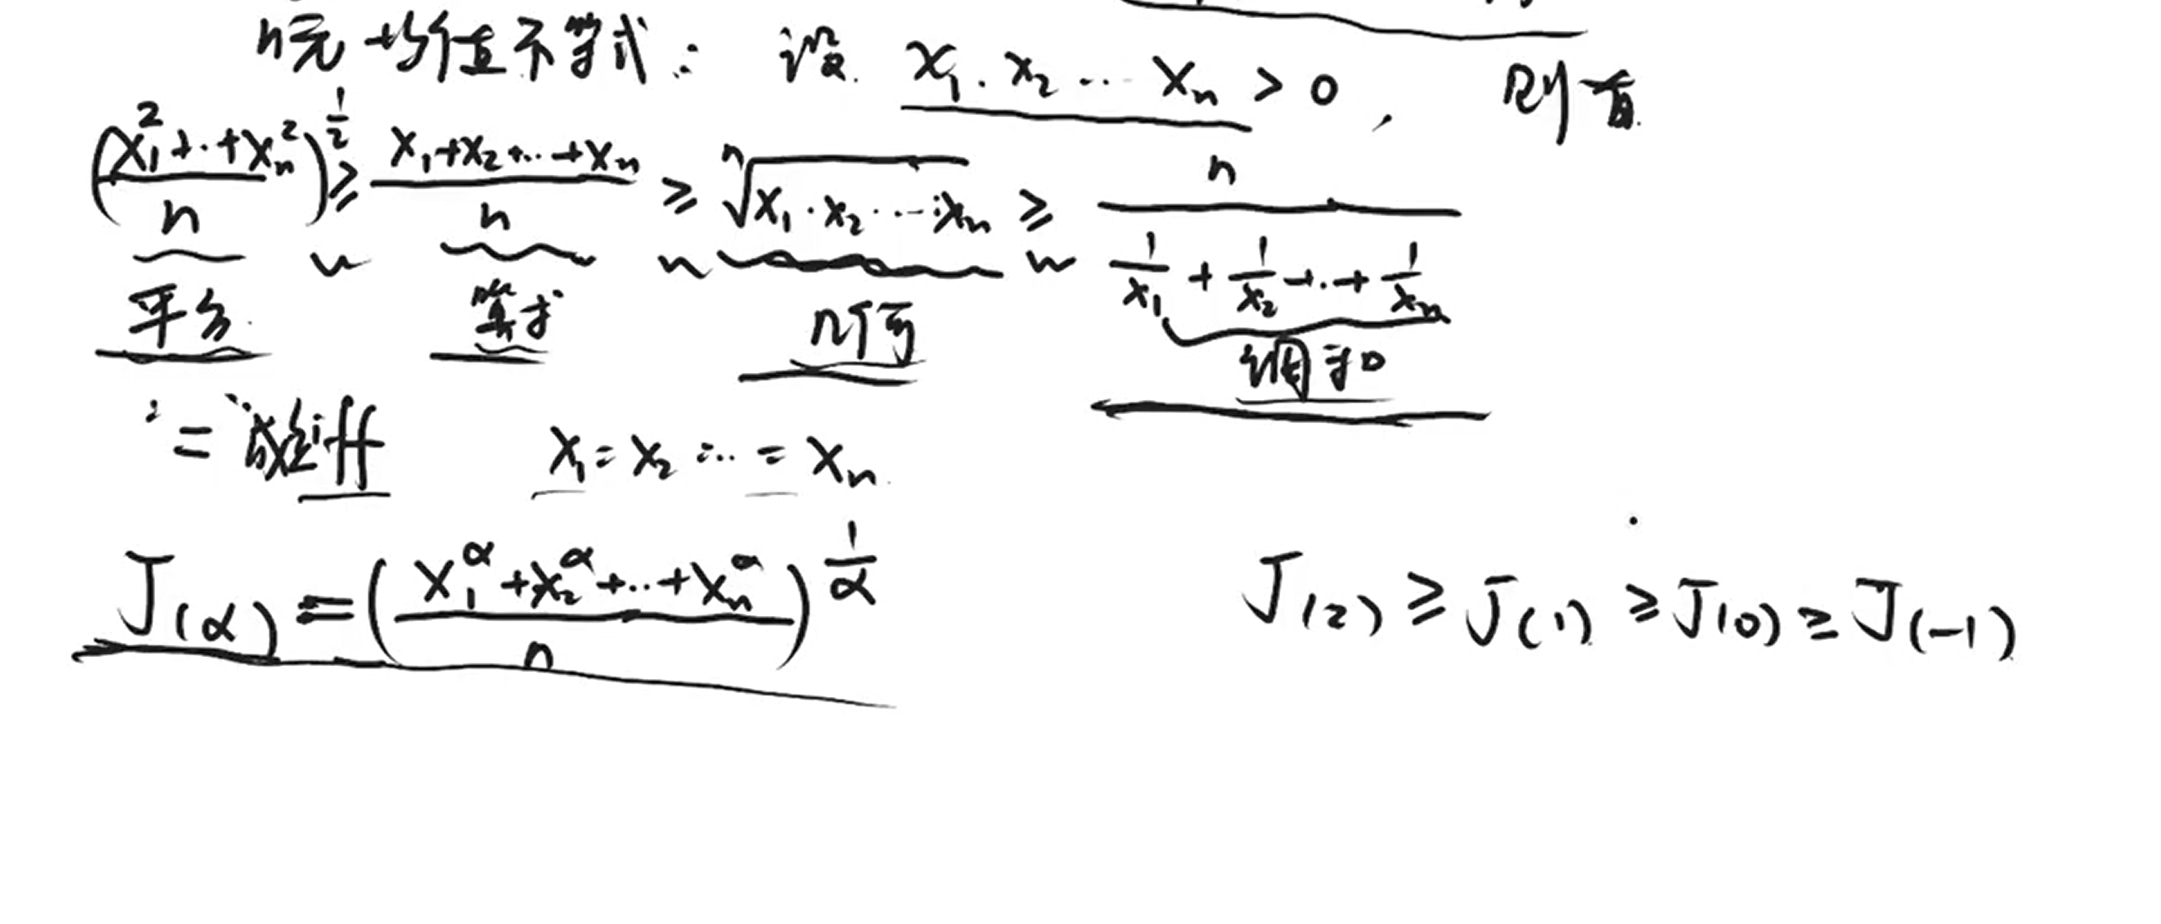 n元均值不等式: 设 x₁·x₂…xₙ > 0, 则有
((x₁²+…+xₙ²)/n)^(1/2) ≥ (x₁+x₂+…+xₙ)/n ≥ ⁿ√(x₁·x₂·…·xₙ) ≥ n/(1/x₁ + 1/x₂ + … + 1/xₙ)
平方 算术 几何 调和
"=" 成立 iff x₁ = x₂ = … = xₙ
J(α) = ((x₁^α + x₂^α + … + xₙ^α)/n)^(1/α) J(2) ≥ J(1) ≥ J(0) ≥ J(-1)